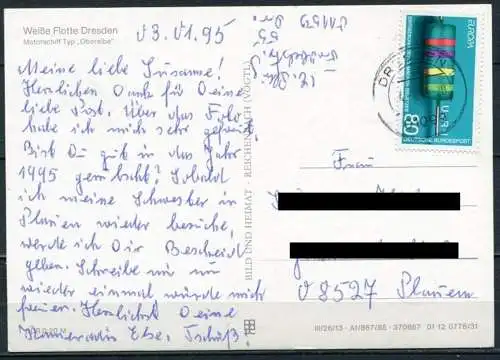 Weiße Flotte Dresden
Motorschiff Typ „Oberelbe"
V 3. V1. 95
Meine liebe Susanne!
Herzlichen Dank für Deine
liebe Post. Über das Foto
habe ich mich sehr gefreut.
Bist Du gut in das Jahr
1995 gerutscht? Sobald
ich meine Schwester in
Plauen wieder besuche,
werde ich Dir Bescheid
geben. Schreibe mir nur
wieder einmal würde mich
freuen. Herzlichst Deine
Else. Tschüß!
BILD UND HEIMAT · REICHENBACH (VOGTL)
EUROPA
80
DEUTSCHE BUNDESPOST
Frau
V 8527 Plauen
III/26/13 · A1/887/86 · 370867 01 12 0778/31